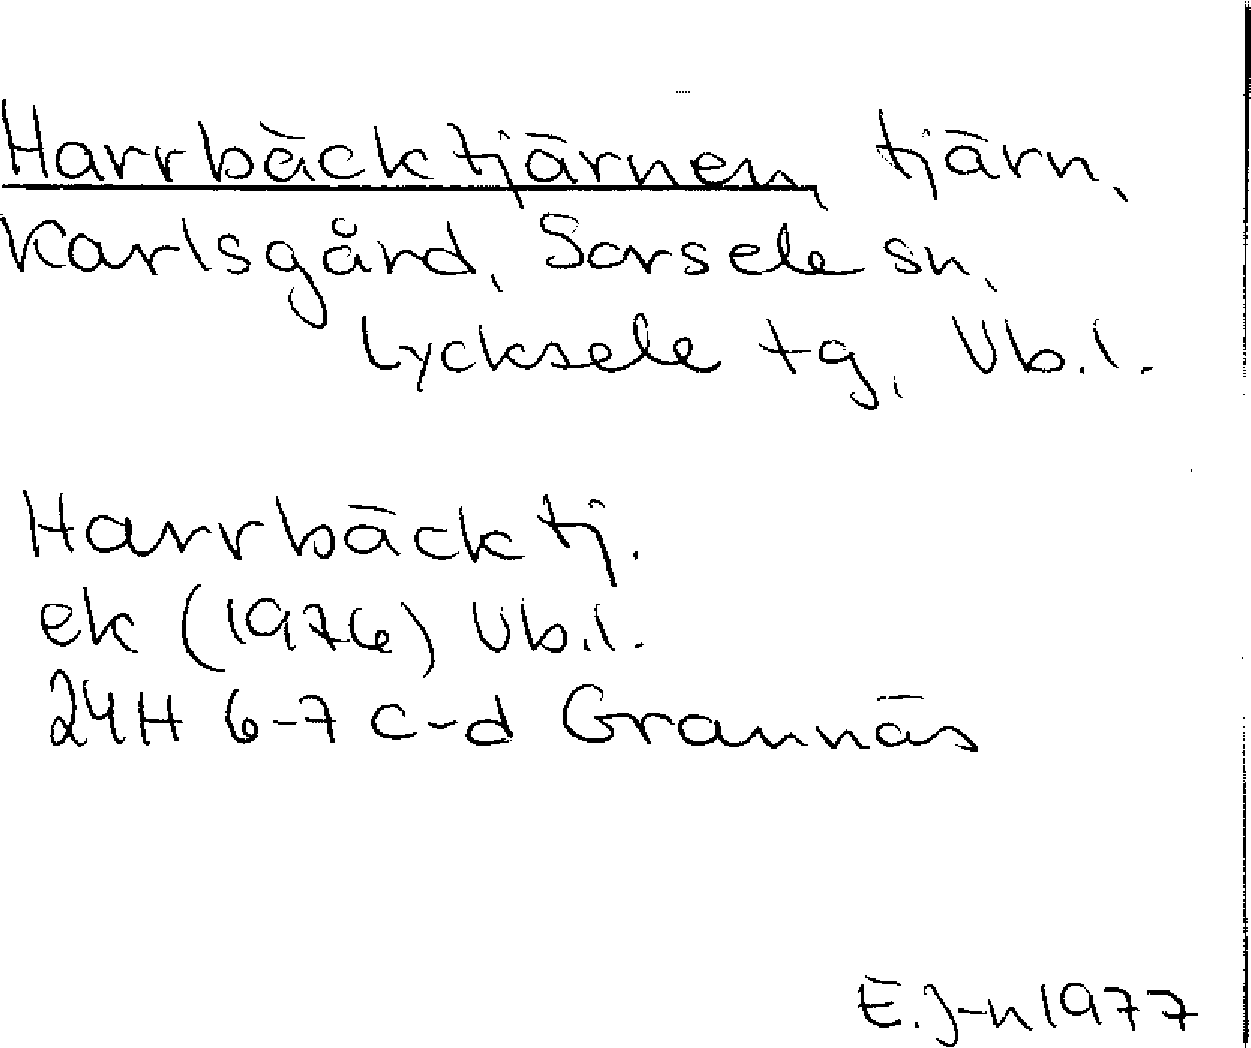 Harrbäcktjärnen, tjärn,
Karlsgård, Sorsele sn,
Lycksele tg, Vb.l.
Harrbäcktj.
ek (1976) Vb.l.
24H 6-7 c-d Grannäs
E.J-n 1977